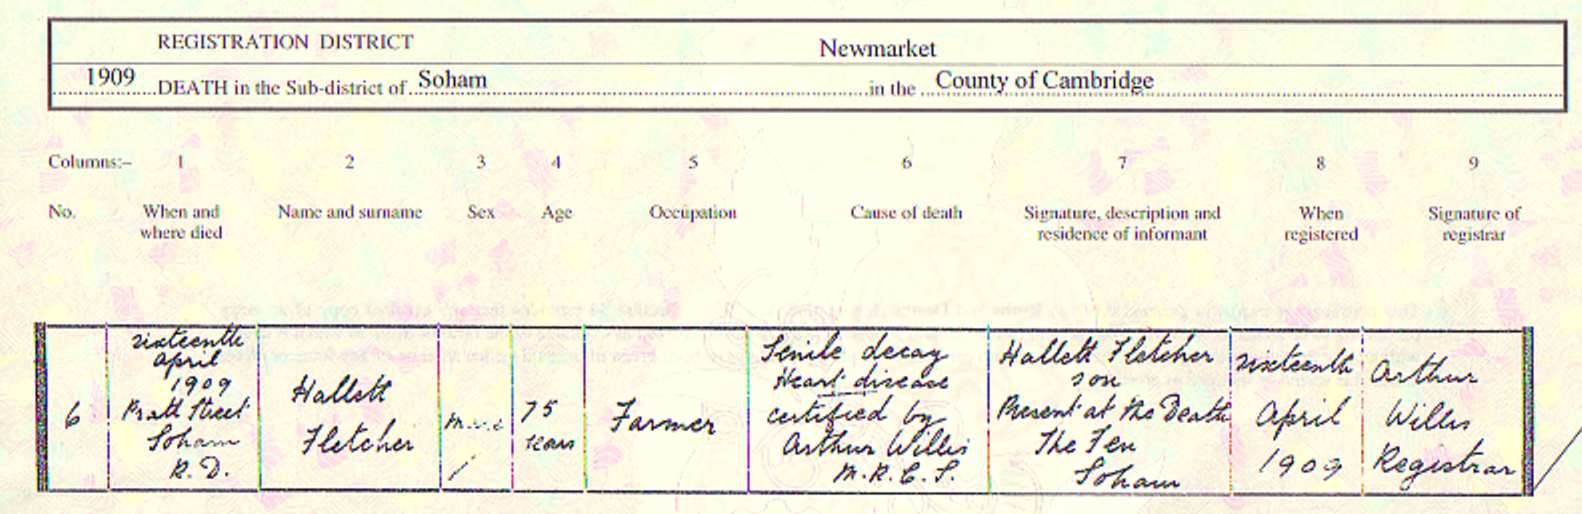 REGISTRATION DISTRICT Newmarket
1909 DEATH in the Sub-district of Soham in the County of Cambridge
Columns:– 1 2 3 4 5 6 7 8 9
No. When and where died Name and surname Sex Age Occupation Cause of death Signature, description and residence of informant When registered Signature of registrar
6
sixteenth
April
1909
Pratt Street
Soham
R.D.
Hallett
Fletcher
Male
75
years
Farmer
Senile decay
Heart disease
certified by
Arthur Willis
M.R.C.S.
Hallett Fletcher
son
Present at the Death
The Fen
Soham
sixteenth
April
1909
Arthur
Willis
Registrar